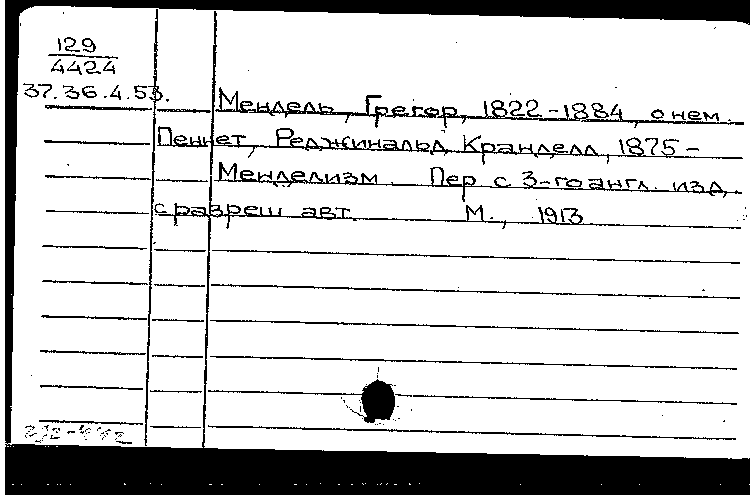 129
4424
37.36.4.53.
Мендель, Грегор, 1822-1884, о нем.
Пеннет, Реджинальд Кранделл, 1875-
Менделизм. Пер с 3-го англ. изд.
с разреш авт. М., 1913